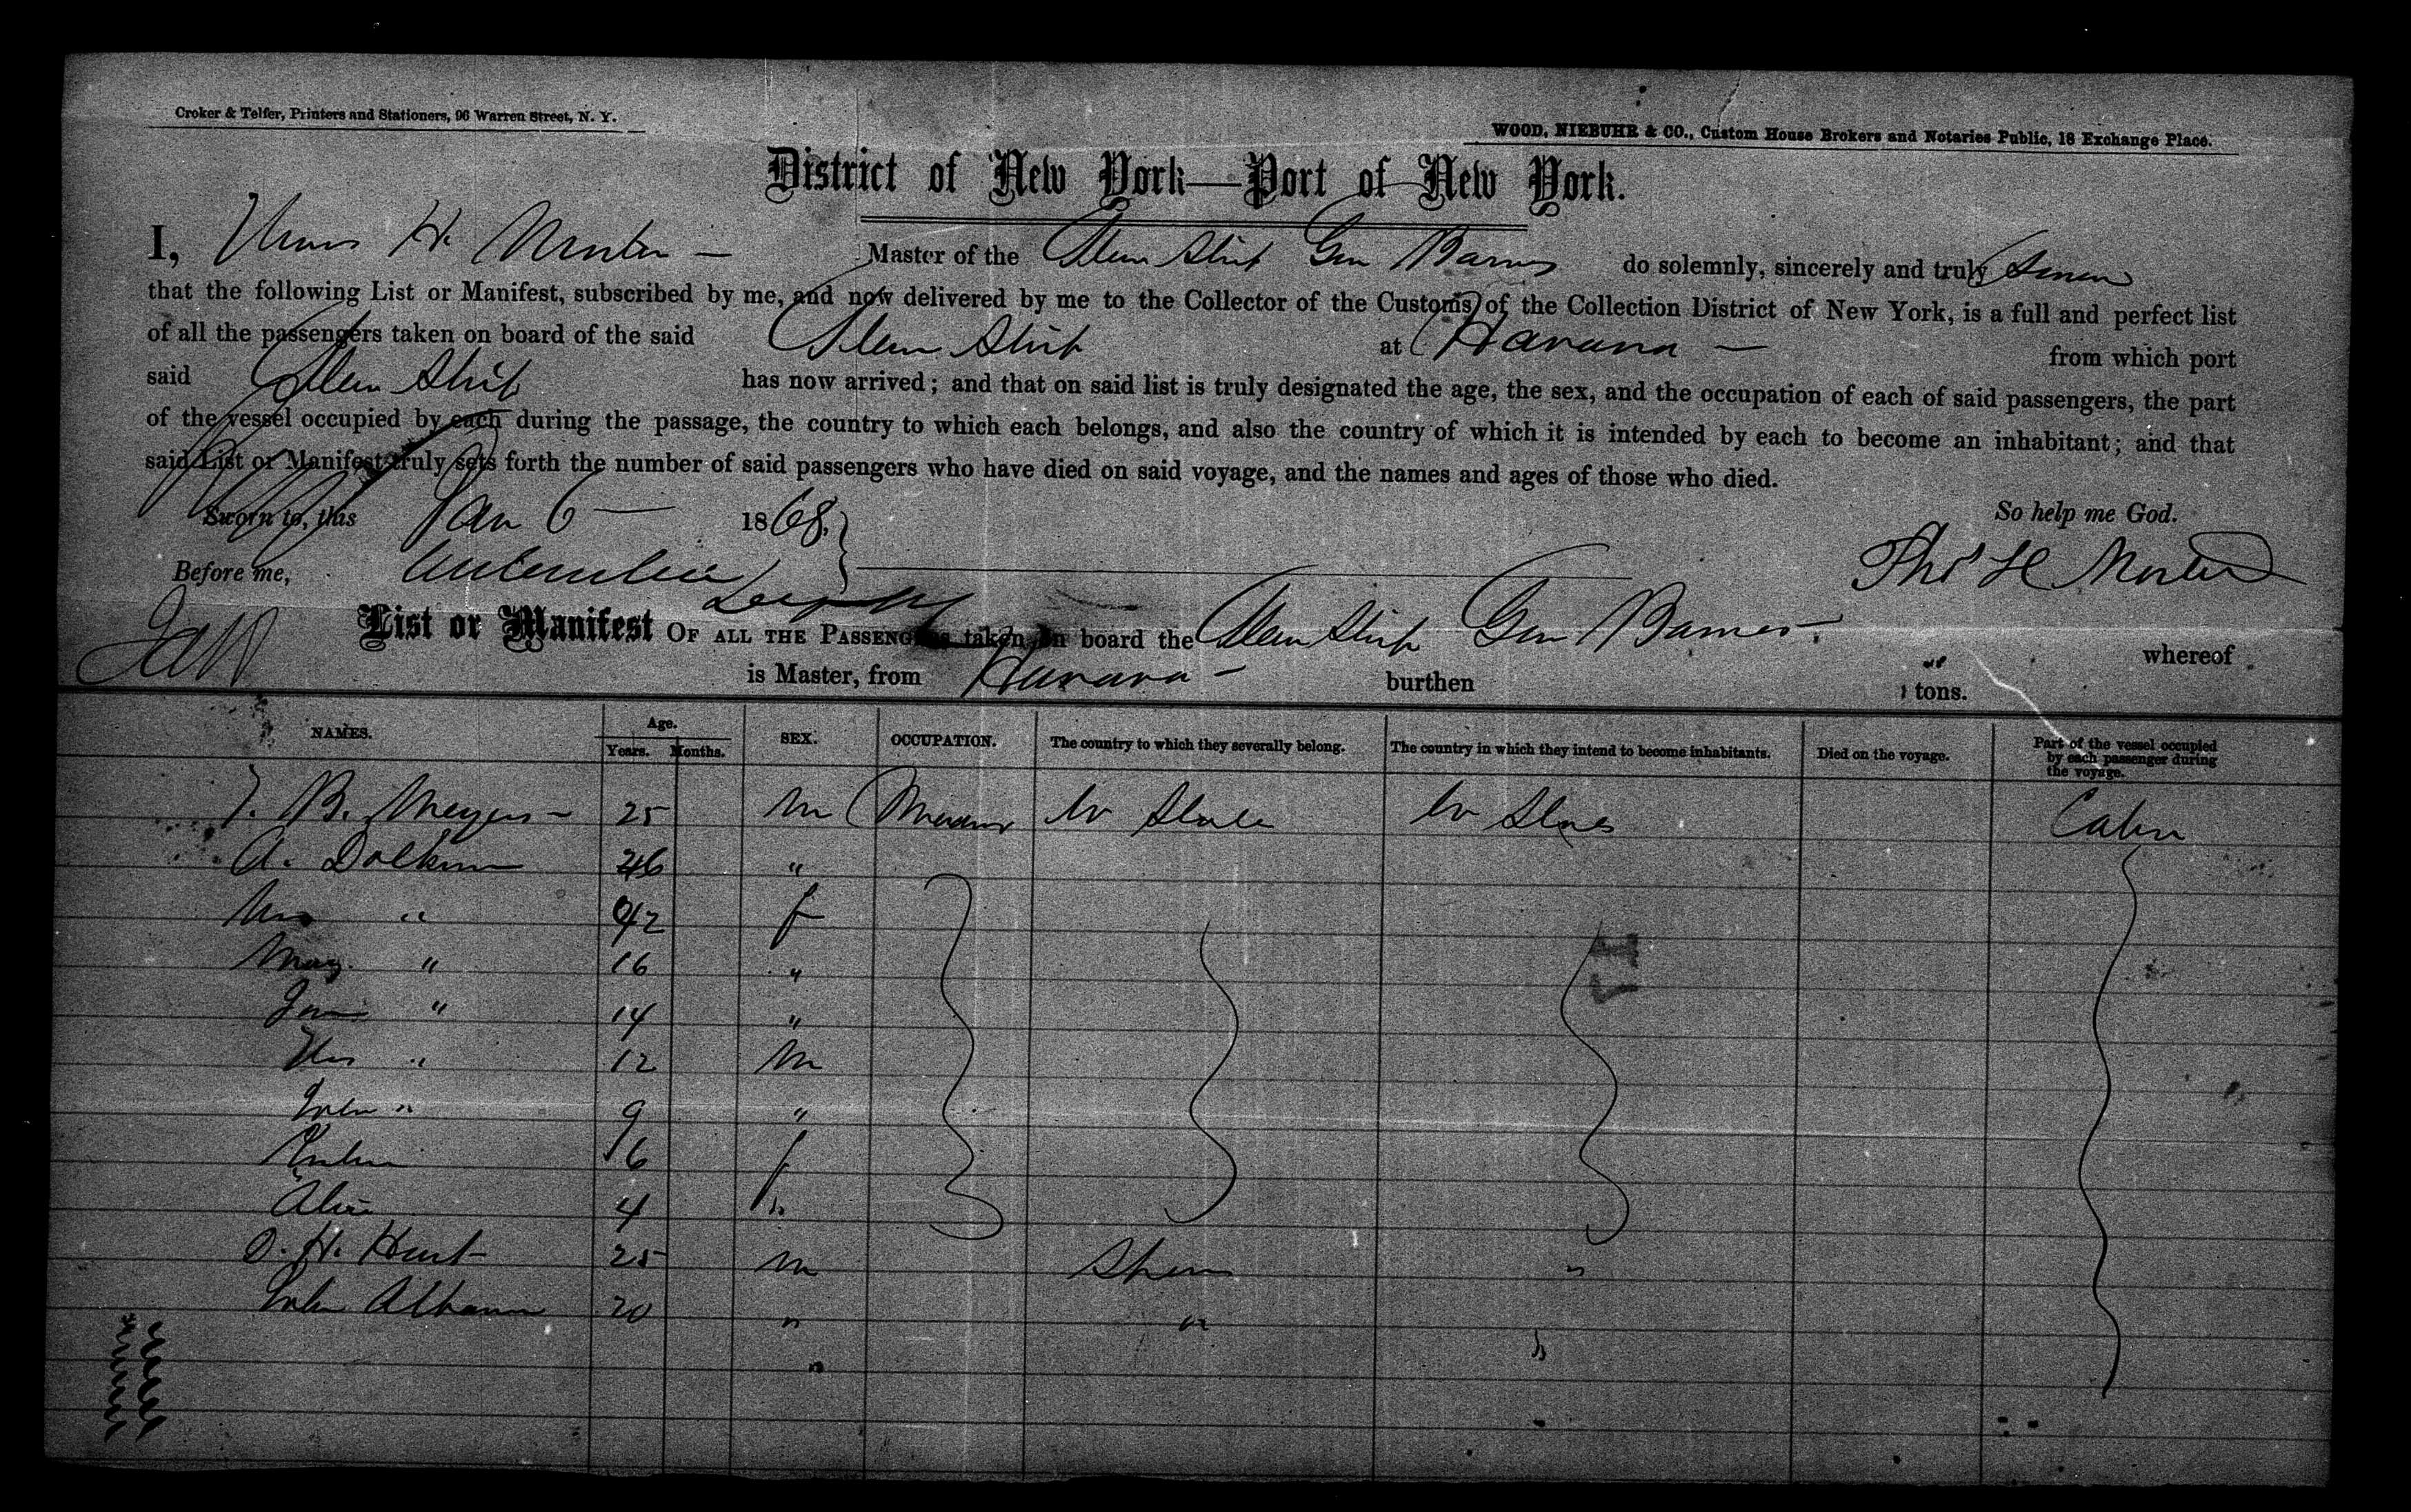 Croker & Telfer, Printers and Stationers, 96 Warren Street, N. Y.
WOOD, NIEBUHR & CO., Custom House Brokers and Notaries Public, 18 Exchange Place.
District of New York—Port of New York.
I, H. Master of the Steam Ship Gen Barnes do solemnly, sincerely and truly Swear
that the following List or Manifest, subscribed by me, and now delivered by me to the Collector of the Customs of the Collection District of New York, is a full and perfect list
of all the passengers taken on board of the said Steam Ship at Havana — from which port
said Steam Ship has now arrived; and that on said list is truly designated the age, the sex, and the occupation of each of said passengers, the part
of the vessel occupied by each during the passage, the country to which each belongs, and also the country of which it is intended by each to become an inhabitant; and that
said List or Manifest truly sets forth the number of said passengers who have died on said voyage, and the names and ages of those who died.
Sworn to, this Jan 6 — 1868. So help me God.
Before me, Thos H
List or Manifest OF ALL THE PASSENGERS taken on board the Steam Ship Gen Barnes whereof
is Master, from Havana — burthen tons.
NAMES. Age. Years. Months. SEX. OCCUPATION. The country to which they severally belong. The country in which they intend to become inhabitants. Died on the voyage. Part of the vessel occupied by each passenger during the voyage.
B. Meyers — 25 M U States U States Cabin
A. 46 "
Mrs " 42 f
Mary " 16 "
Jane " 14 "
" 12 M
John " 9 "
6 f
Alice 4 "
O. H. Hunt 25 M Spain "
John 20 " "